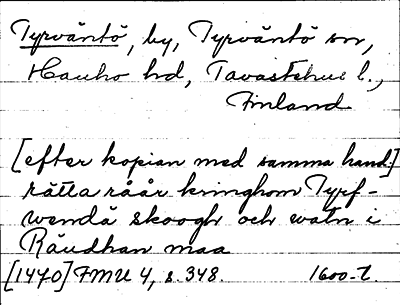 Tyrväntö, by, Tyrväntö sn,
Hauho hd, Tavastehus l.,
Finland
[efter kopian med samma hand:]
rätta råår kringhom Tyrf-
wendä skooghr och watn i
Räudhan maa
[1470] FMU 4, s. 348. 1600-t.